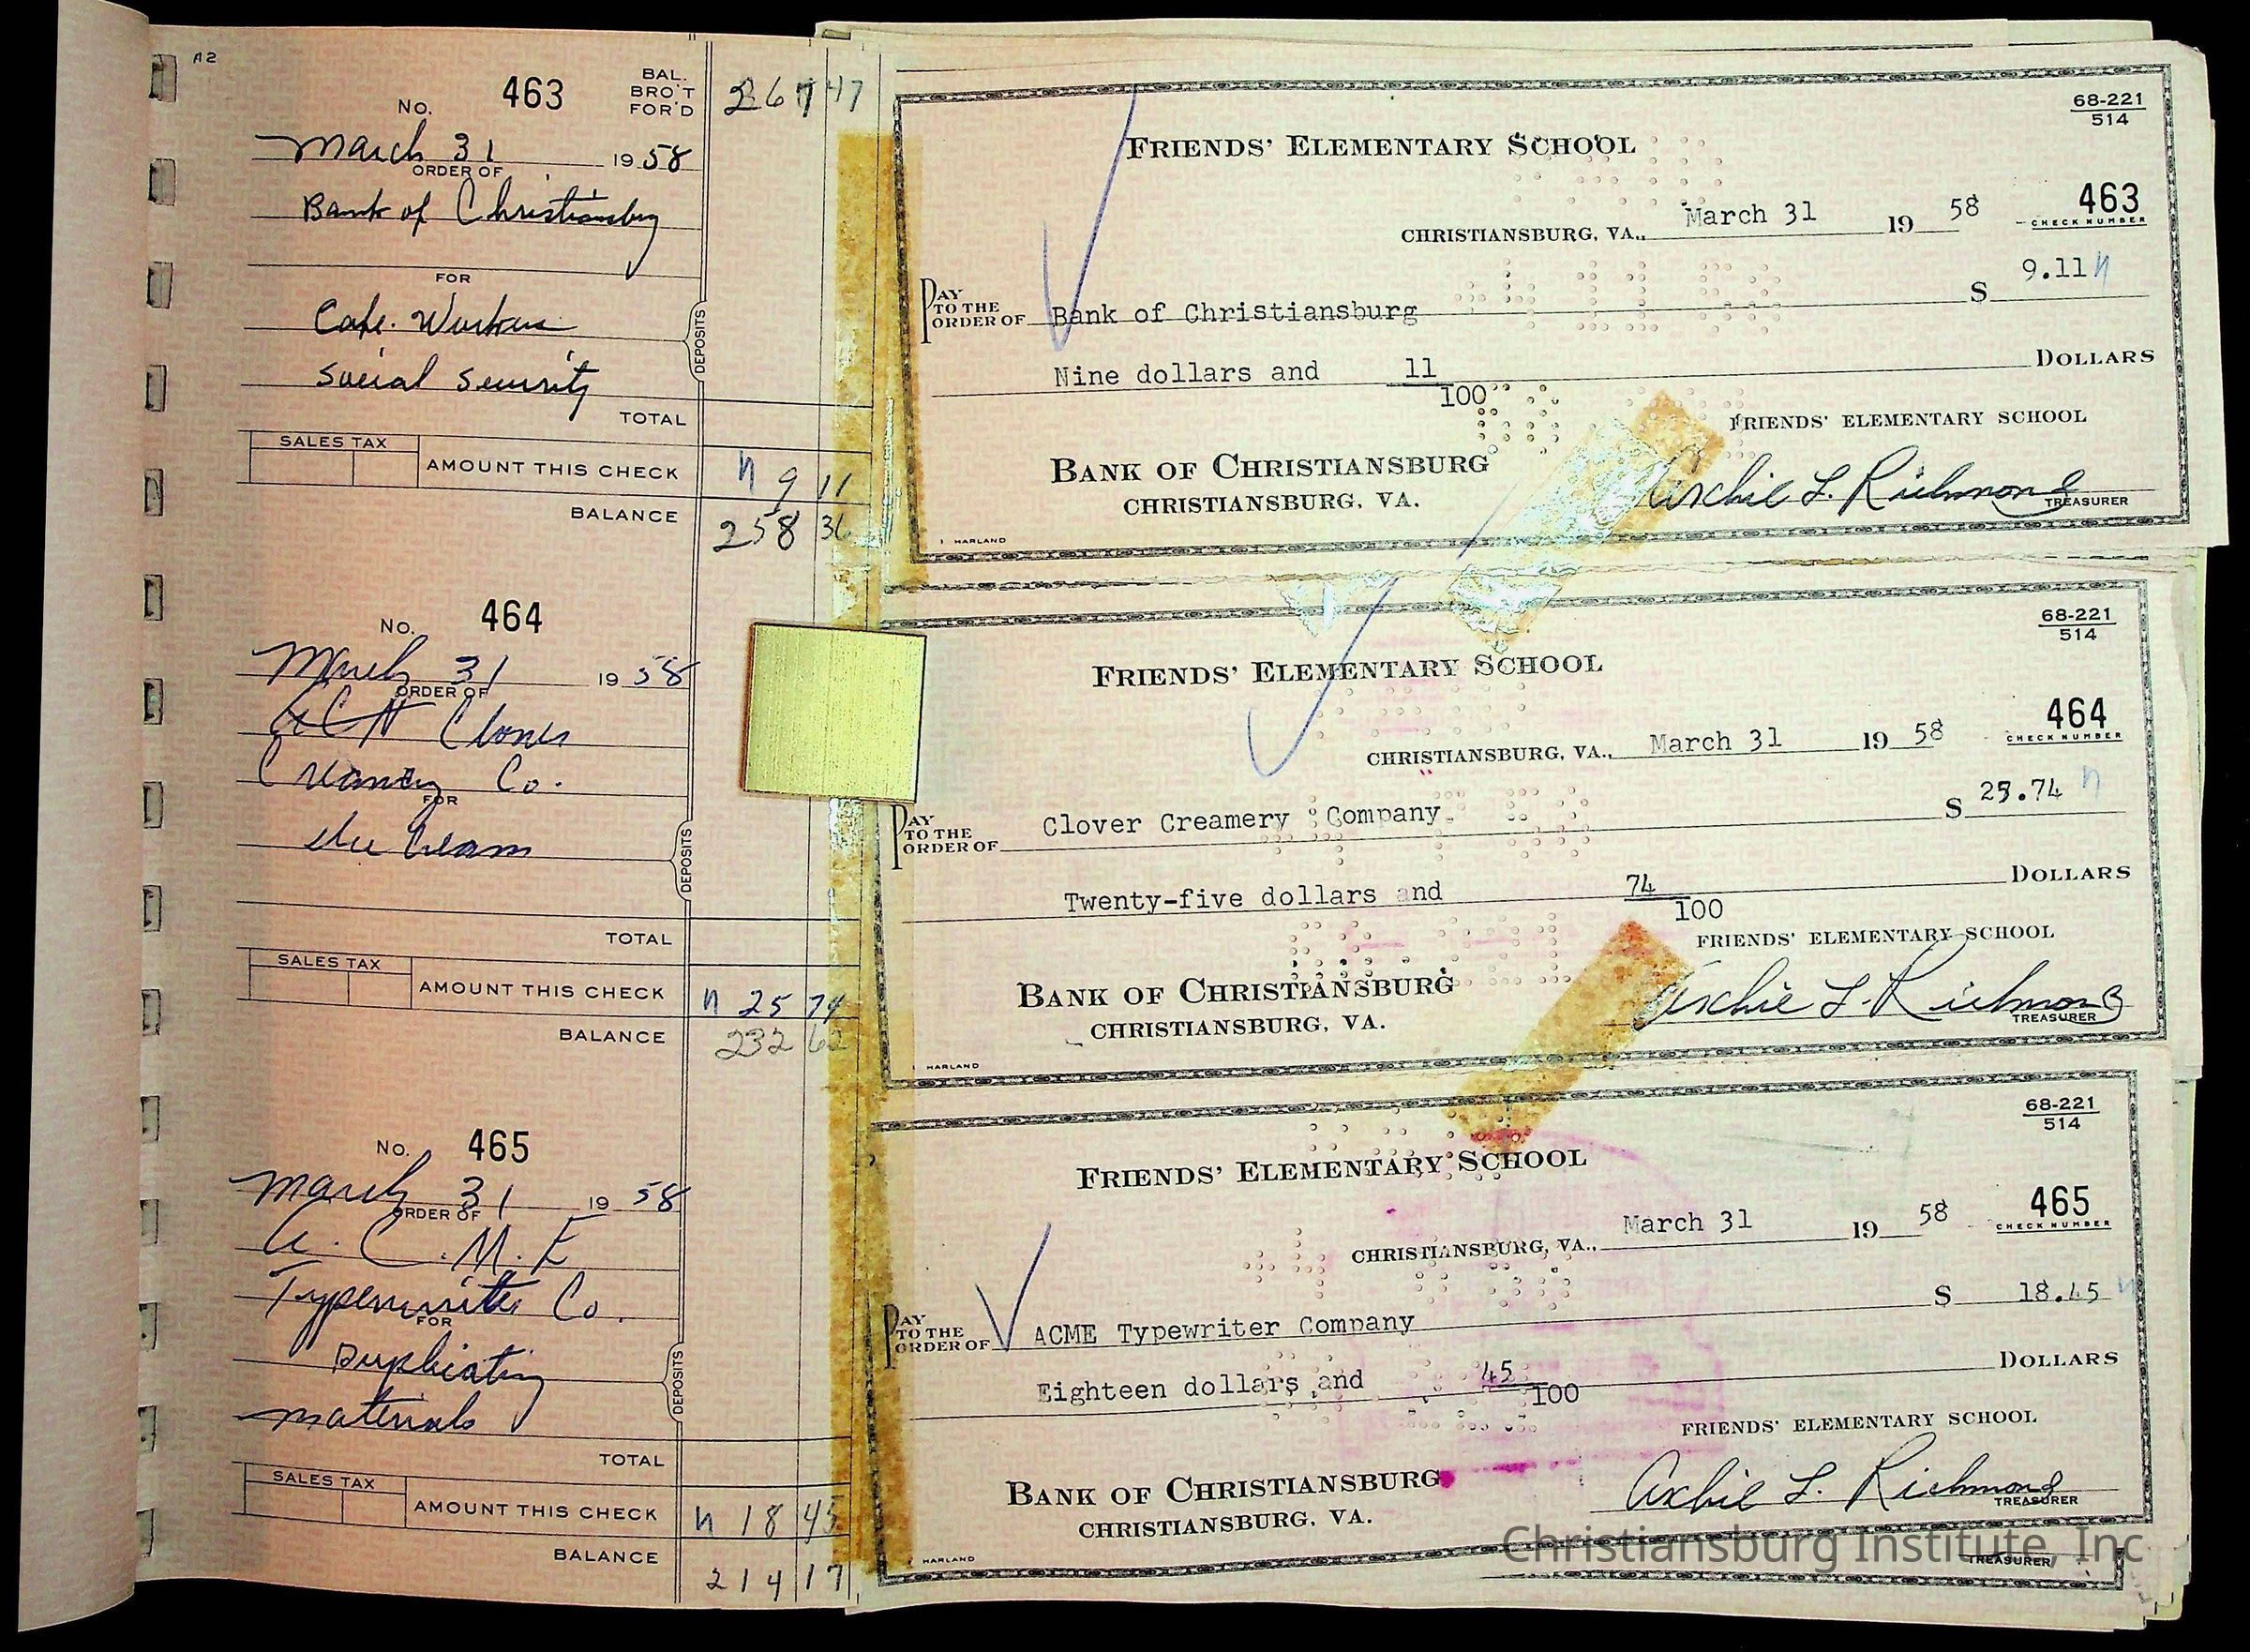 A2
No. 463 BAL. BRO'T FOR'D 267 47
March 31 1958
ORDER OF
Bank of Christiansburg
FOR
Cafe. Workers
Social Security
DEPOSITS
TOTAL
SALES TAX
AMOUNT THIS CHECK n 9 11
BALANCE 258 36
No. 464
March 31 1958
ORDER OF
Clover
Creamery Co.
FOR
Ice Cream
DEPOSITS
TOTAL
SALES TAX
AMOUNT THIS CHECK n 25 74
BALANCE 232 62
No. 465
March 31 1958
ORDER OF
A. C. M. E
Typewriter Co.
FOR
Duplicating
materials
DEPOSITS
TOTAL
SALES TAX
AMOUNT THIS CHECK n 18 45
BALANCE
214 17
68-221
514
FRIENDS' ELEMENTARY SCHOOL
CHRISTIANSBURG, VA., March 31 19 58 463
CHECK NUMBER
PAY TO THE ORDER OF Bank of Christiansburg $ 9.11 n
Nine dollars and 11/100 DOLLARS
FRIENDS' ELEMENTARY SCHOOL
BANK OF CHRISTIANSBURG
CHRISTIANSBURG, VA.
Archie L. Richmond
TREASURER
HARLAND
68-221
514
FRIENDS' ELEMENTARY SCHOOL
CHRISTIANSBURG, VA., March 31 19 58 464
CHECK NUMBER
PAY TO THE ORDER OF Clover Creamery Company $ 25.74 n
Twenty-five dollars and 74/100 DOLLARS
FRIENDS' ELEMENTARY SCHOOL
BANK OF CHRISTIANSBURG
CHRISTIANSBURG, VA.
Archie L. Richmond
TREASURER
HARLAND
68-221
514
FRIENDS' ELEMENTARY SCHOOL
CHRISTIANSBURG, VA., March 31 19 58 465
CHECK NUMBER
PAY TO THE ORDER OF ACME Typewriter Company $ 18.45
Eighteen dollars and 45/100 DOLLARS
FRIENDS' ELEMENTARY SCHOOL
BANK OF CHRISTIANSBURG
CHRISTIANSBURG, VA.
Archie L. Richmond
TREASURER
HARLAND
TREASURER
Christiansburg Institute, Inc